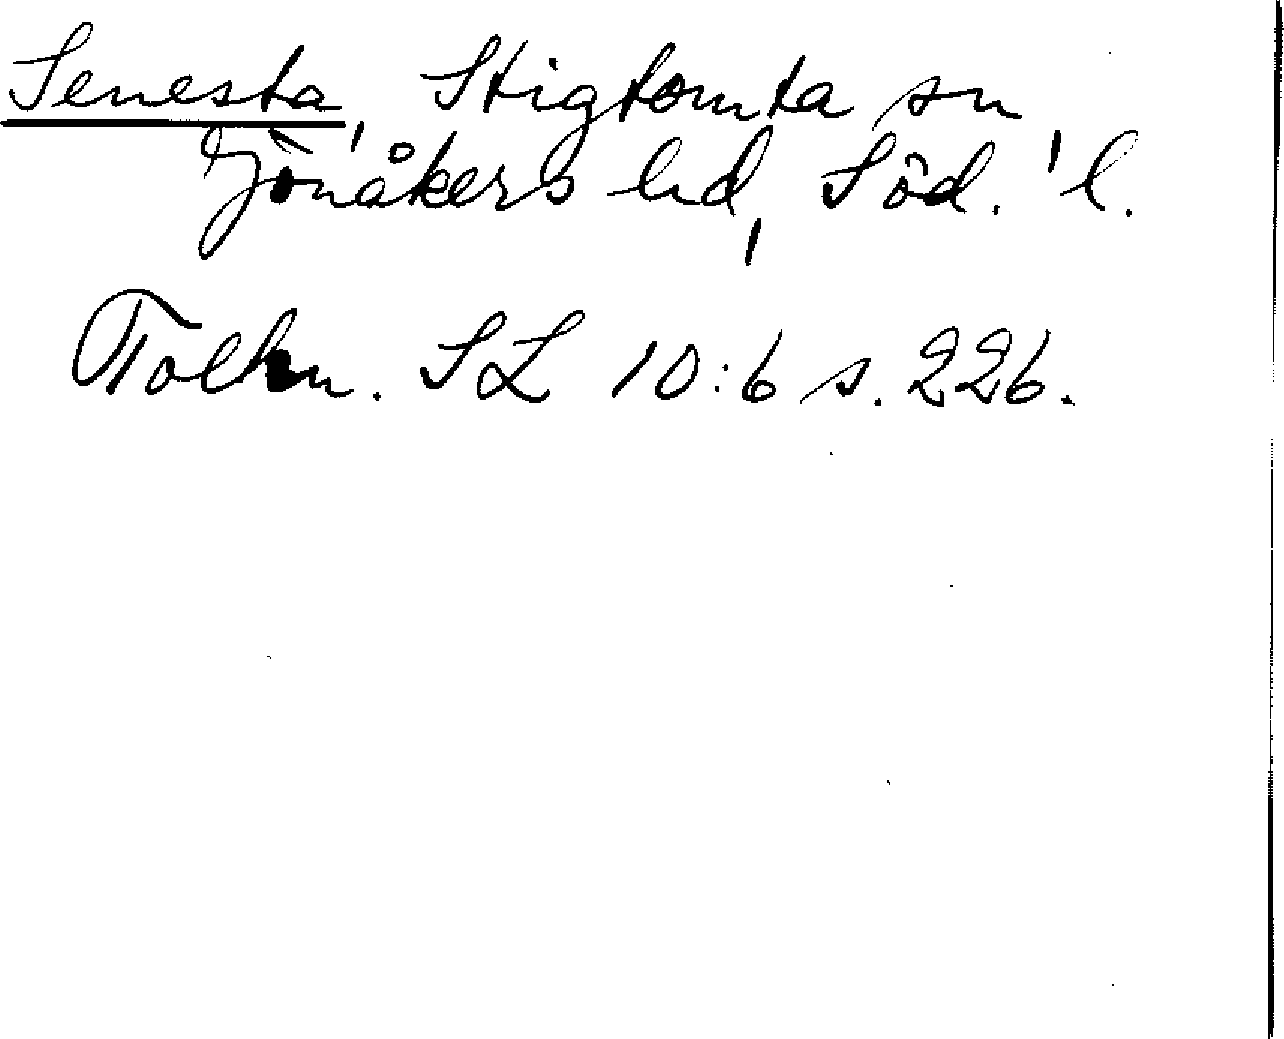 Senesta, Stigtomta sn,
Jönåkers hd, Söd. l.
Tolkn. SL 10:6 s. 226.